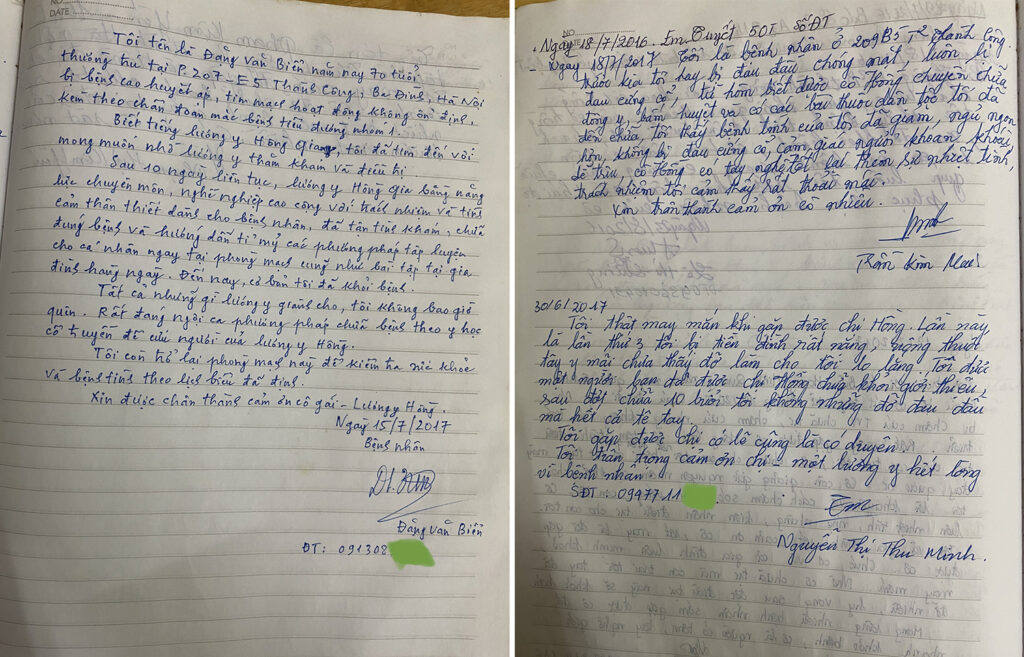 NO.
DATE
Tôi tên là Đặng Văn Biển năm nay 70 tuổi
thường trú tại P. 207 - E5 Thành Công, Ba Đình, Hà Nội
bị bệnh cao huyết áp, tim mạch hoạt động không ổn định,
kèm theo chẩn đoán mắc bệnh tiểu đường nhóm 1.
Biết tiếng lương y Hồng Giang, tôi đã tìm đến với
mong muốn nhờ lương y thăm khám và điều trị.
Sau 10 ngày liên tục, lương y Hồng Gia bằng năng
lực chuyên môn, nghề nghiệp cao cộng với trách nhiệm và tình
cảm thân thiết dành cho bệnh nhân, đã tận tình khám, chữa
đúng bệnh và hướng dẫn tỉ mỷ các phương pháp tập luyện
cho cá nhân ngay tại phòng mạch cũng như bài tập tại gia
đình hàng ngày. Đến nay, cơ bản tôi đã khỏi bệnh.
Tất cả những gì lương y giành cho, tôi không bao giờ
quên. Rất đáng ngợi ca phương pháp chữa bệnh theo y học
cổ truyền để cứu người của lương y Hồng.
Tôi còn trở lại phòng mạch này để kiểm tra sức khỏe
và bệnh tình theo lịch biểu đã định.
Xin được chân thành cảm ơn cô gái - Lương y Hồng.
Ngày 15/7/2017
Bệnh nhân
Đặng Văn Biển
ĐT: 091308
NO.
Ngày 18/7/2016. Em Tuyết SĐT Số ĐT
- Ngày 18/7/2017 Tôi là bệnh nhân ở 209 B5 Thành Công
trước kia tôi hay bị đau đầu chóng mặt, luôn bị
đau cứng cổ, từ hôm biết được cô Hồng chuyên chữa
đông y, bấm huyệt và có các bài thuốc dân tộc tôi đã
đến chữa tôi thấy bệnh tình của tôi đã giảm, ngủ ngon
hơn, không bị đau cứng cổ, cảm giác người khoan khoái
dễ trìu, cô Hồng có tay nghề tốt lại thêm sự nhiệt tình,
trách nhiệm tôi cảm thấy rất thoải mái.
Xin trân thành cảm ơn cô nhiều.
Trần Kim
30/6/2017
Tôi thật may mắn khi gặp được chị Hồng. Lần này
là lần thứ 3 tôi bị tiền đình rất nặng, uống thuốc
tây y mãi chưa thấy đỡ làm cho tôi lo lắng. Tôi được
một người bạn đã được chị Hồng chữa khỏi giới thiệu,
sau đợt chữa 10 buổi tôi không những đỡ đau đầu
mà hết cả tê tay.
Tôi gặp được chị có lẽ cũng là cơ duyên.
Tôi trân trọng cảm ơn chị - một lương y hết lòng
vì bệnh nhân.
SĐT: 0947711
Nguyễn Thị Thu Minh.